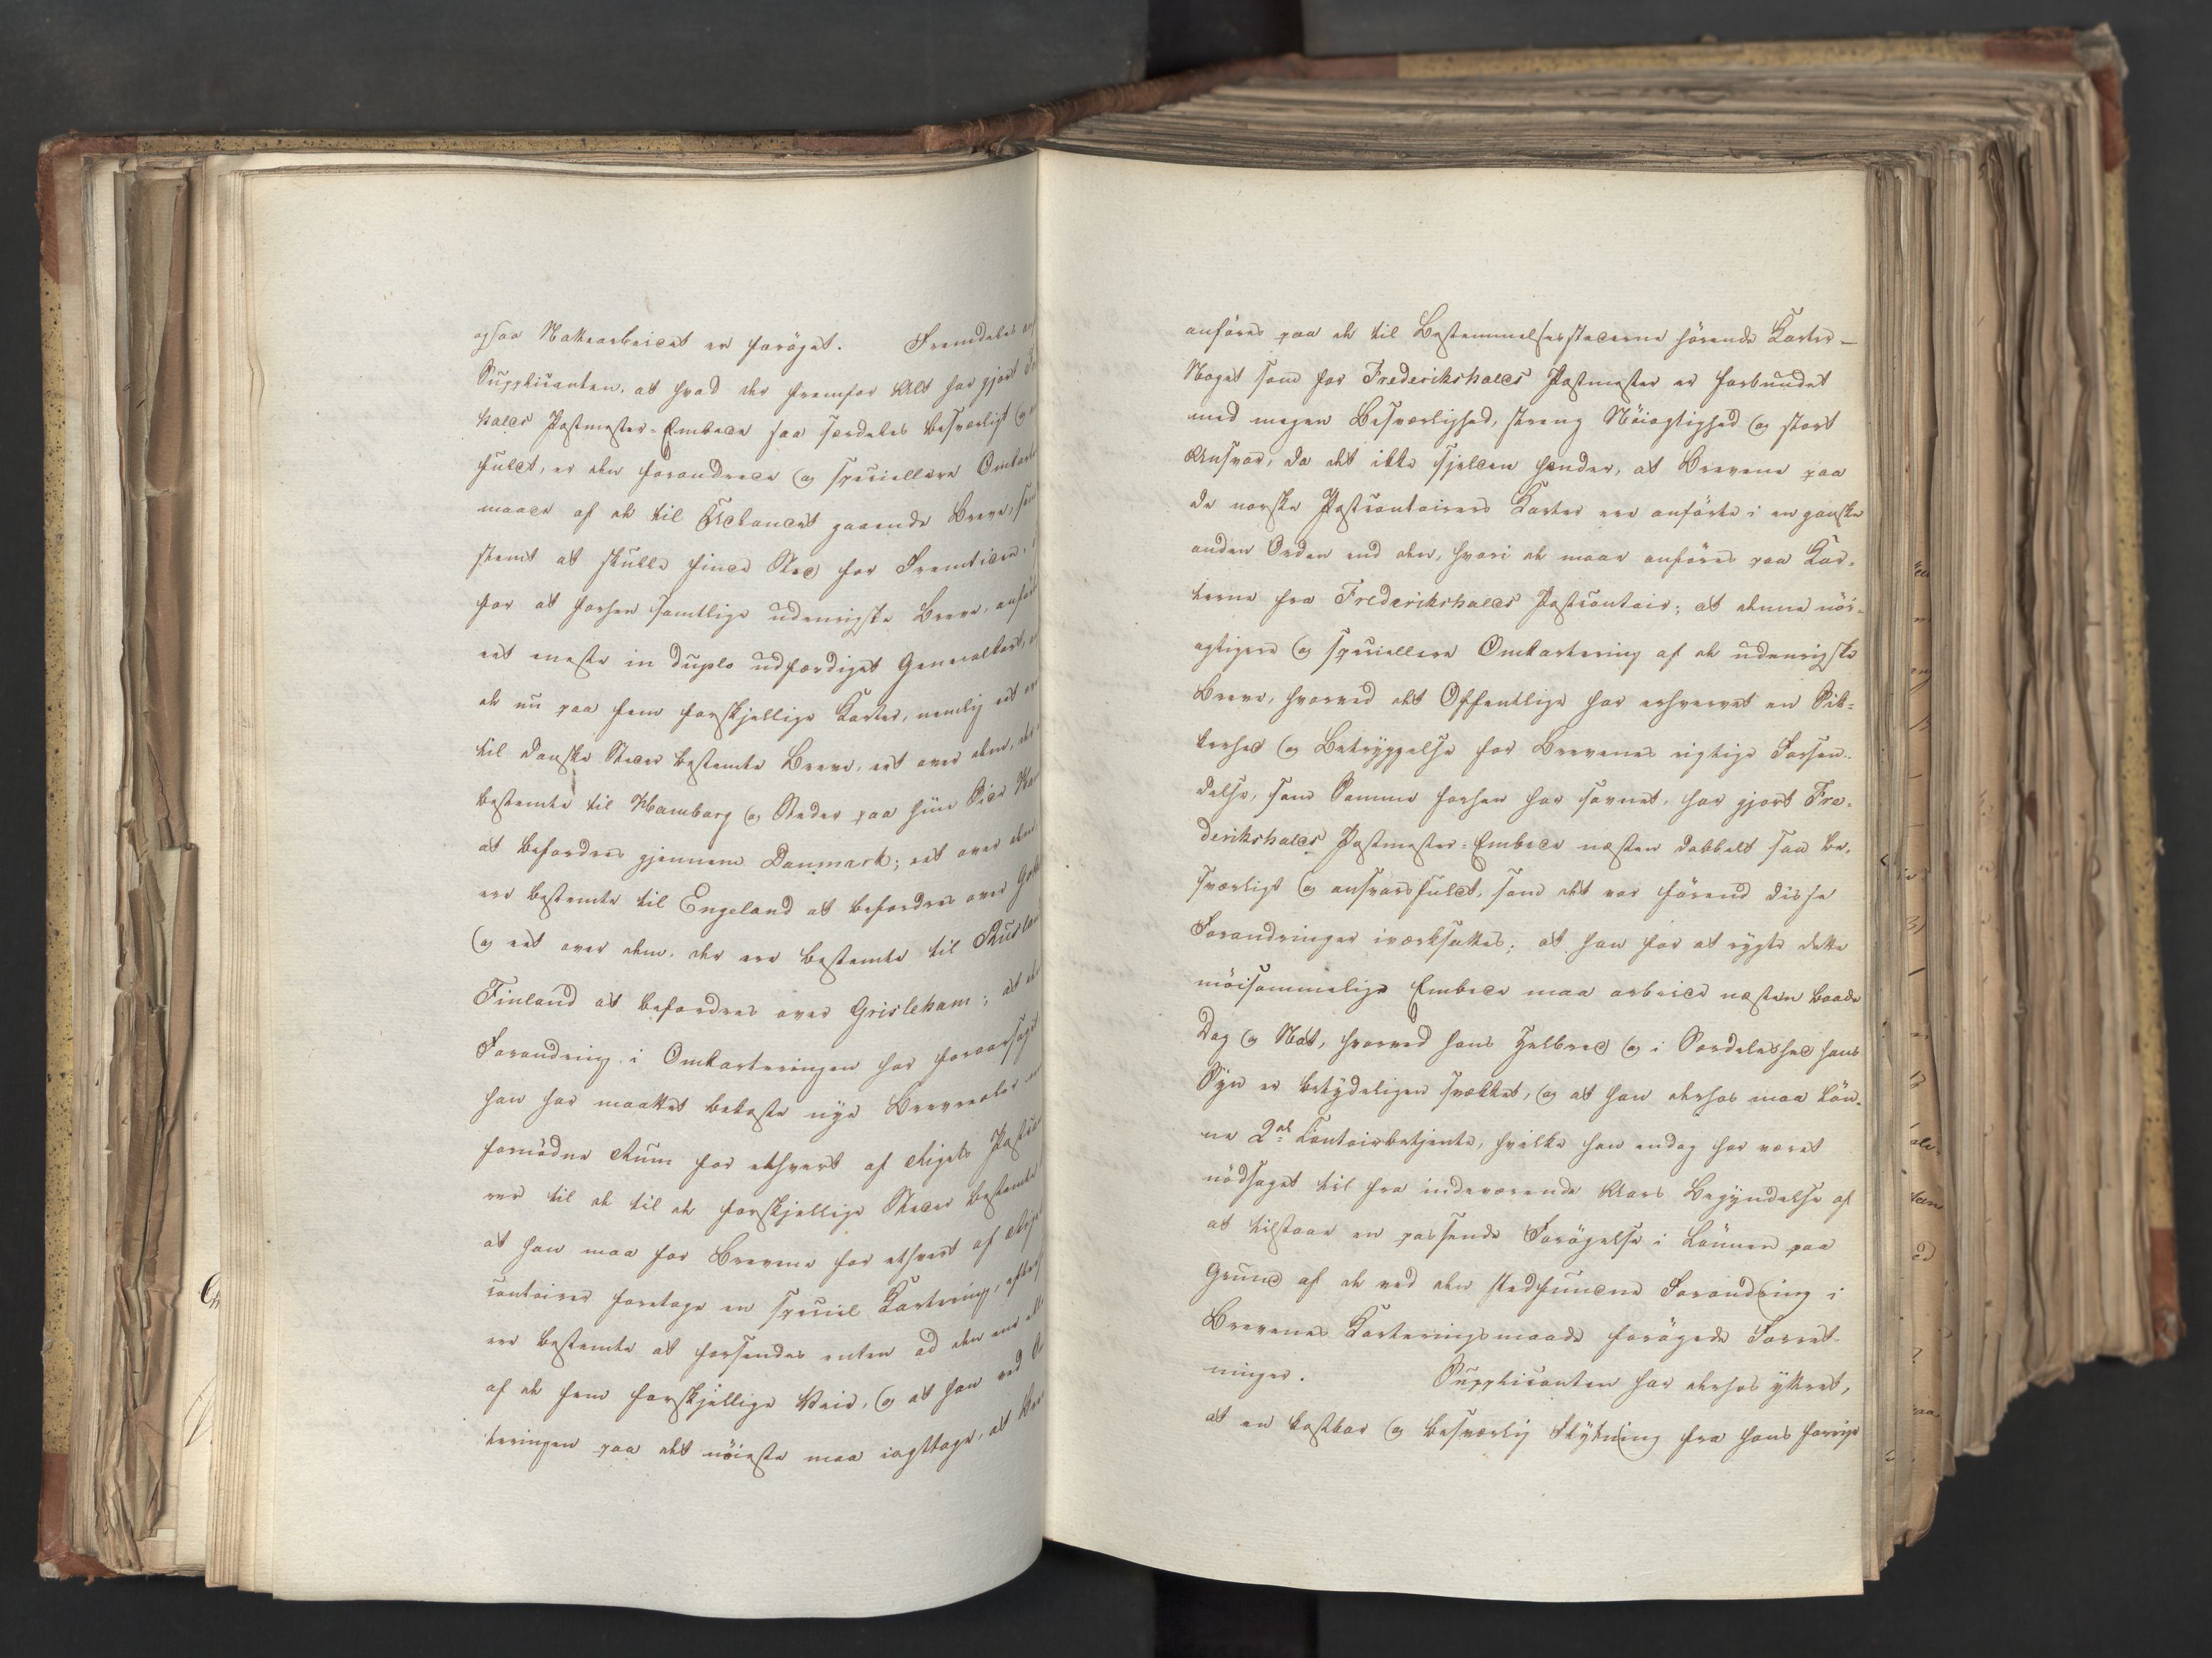 ogsaa Nattearbeidet er forøget. Fremdeles
Supplicanten, at hvad der fremfor Alt har gjort
halds Postmester-Embede saa særdeles besværligt og
fuldt, er den forandrede og speciellere Omkart
maade af de til Udlandet gaaende Breve, som
stemt at skulle finde Sted for Fremtiden,
for at forhen samtlige udenrigske Breve, anfør
eet eneste in duplo udfærdiget Generalkart,
de nu paa fem forskjellige Karter, nemlig eet
til danske Steder bestemte Breve, eet over dem, der
bestemte til Hamborg og Steder paa hiin Side
at befordres gjennem Danmark; eet over dem
ere bestemte til Engeland at befordres over
og eet over dem, der ere bestemte til Rusland
Finland at befordres over Grisleham; at
Forandring i Omkarteringen har foraarsaget
han har maattet bekoste nye Brevreoler
fornødne Rum for ethvert af Rigets Post
rer til de til de forskjellige Steder bestemte
at han maa for Brevene for ethvert af
contoirer foretage en speciel Kartering, efter
ere bestemte at forsendes enten ad den ene
af de fem forskjellige Veie, og at han ved
teringen paa det nøieste maa iagttage, at
anføres paa de til Bestemmelsesstederne hørende Karter —
Noget som for Frederikshalds Postmester er forbundet
med megen Besværlighed, streng Nøiagtighed og stort
Ansvar, da det ikke sjelden hender, at Brevene paa
de norske Postcontoirers Karter ere anførte i en ganske
anden Orden end den, hvori de maae anføres paa Kar-
terne fra Frederikshalds Postcontoir; at denne nøi-
agtigere og speciellere Omkartering af de udenrigske
Breve, hvorved det Offentlige har erhvervet en Sik-
kerhed og Betryggelse for Brevenes rigtige Forsen-
delse, som Samme forhen har savnet, har gjort Fre-
derikshalds Postmester-Embede næsten dobbelt saa be-
sværligt og ansvarsfuldt, som det var førend disse
Forandringer iværksattes; at han for at rygte dette
møisommelige Embede maa arbeide næsten baade
Dag og Nat, hvorved hans Helbred og i Særdeleshed hans
Syn er betydeligen svækket, og at han derhos maa løn-
ne 2de Contoirbetjente, hvilke han endog har været
nødsaget til fra indeværende Aars Begyndelse af
at tilstaae en passende Forøgelse i Lønnen paa
Grund af de ved den stedfundne Forandring i
Brevenes Karteringsmaade forøgede Forret-
ninger. Supplicanten har derhos yttret,
at en kostbar og besværlig Flytning fra hans forrige